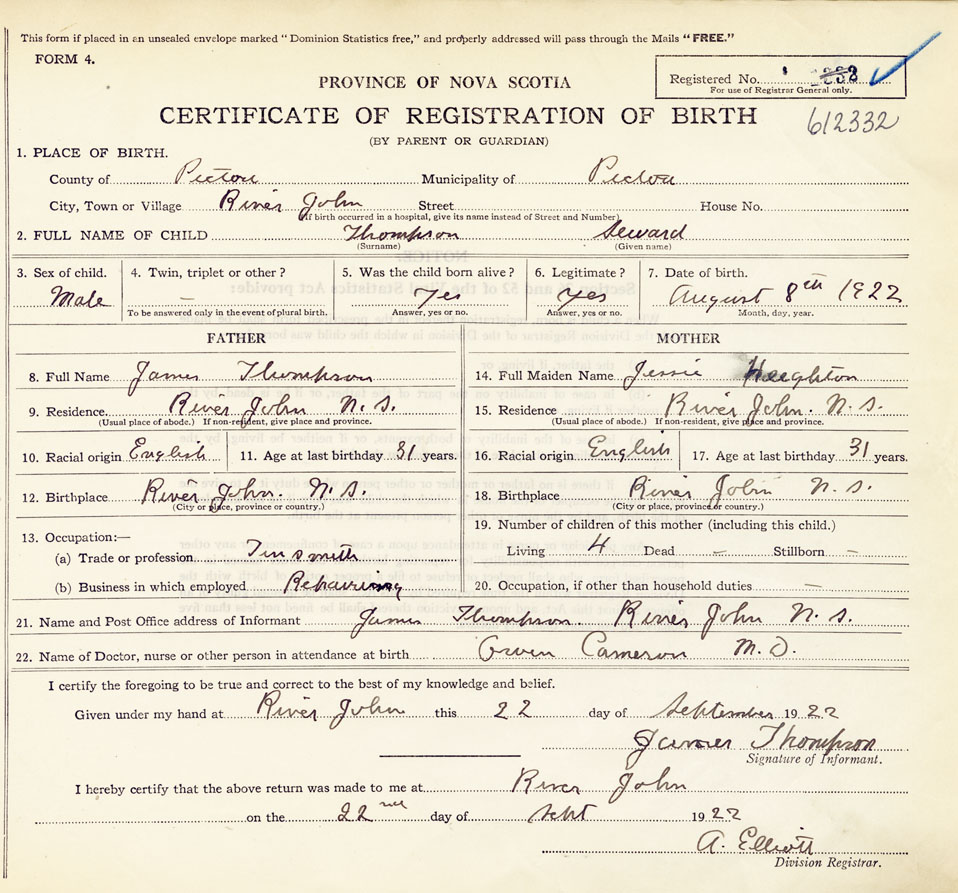 This form if placed in an unsealed envelope marked "Dominion Statistics free," and properly addressed will pass through the Mails "FREE."
FORM 4.
Registered No.
For use of Registrar General only.
PROVINCE OF NOVA SCOTIA
CERTIFICATE OF REGISTRATION OF BIRTH
612332
(BY PARENT OR GUARDIAN)
1. PLACE OF BIRTH.
County of Pictou Municipality of Pictou
City, Town or Village River John Street House No.
(If birth occurred in a hospital, give its name instead of Street and Number)
2. FULL NAME OF CHILD Thompson Seward
(Surname) (Given name)
3. Sex of child. 4. Twin, triplet or other? 5. Was the child born alive? 6. Legitimate? 7. Date of birth.
Male — Yes Yes August 8th 1922
To be answered only in the event of plural birth. Answer, yes or no. Answer, yes or no. Month, day, year.
FATHER MOTHER
8. Full Name James Thompson 14. Full Maiden Name Jessie Heighton
9. Residence River John N.S. 15. Residence River John. N.S.
(Usual place of abode.) If non-resident, give place and province. (Usual place of abode.) If non-resident, give place and province.
10. Racial origin English 11. Age at last birthday 31 years. 16. Racial origin English 17. Age at last birthday 31 years.
12. Birthplace River John. N.S. 18. Birthplace River John N.S.
(City or place, province or country.) (City or place, province or country.)
13. Occupation:— 19. Number of children of this mother (including this child.)
(a) Trade or profession Tinsmith Living 4 Dead — Stillborn —
(b) Business in which employed Repairing 20. Occupation, if other than household duties —
21. Name and Post Office address of Informant James Thompson. River John N.S.
22. Name of Doctor, nurse or other person in attendance at birth Cameron M.D.
I certify the foregoing to be true and correct to the best of my knowledge and belief.
Given under my hand at River John this 22 day of September 1922
James Thompson
Signature of Informant.
I hereby certify that the above return was made to me at River John
on the 22nd day of Sept 1922
A. Elliott
Division Registrar.